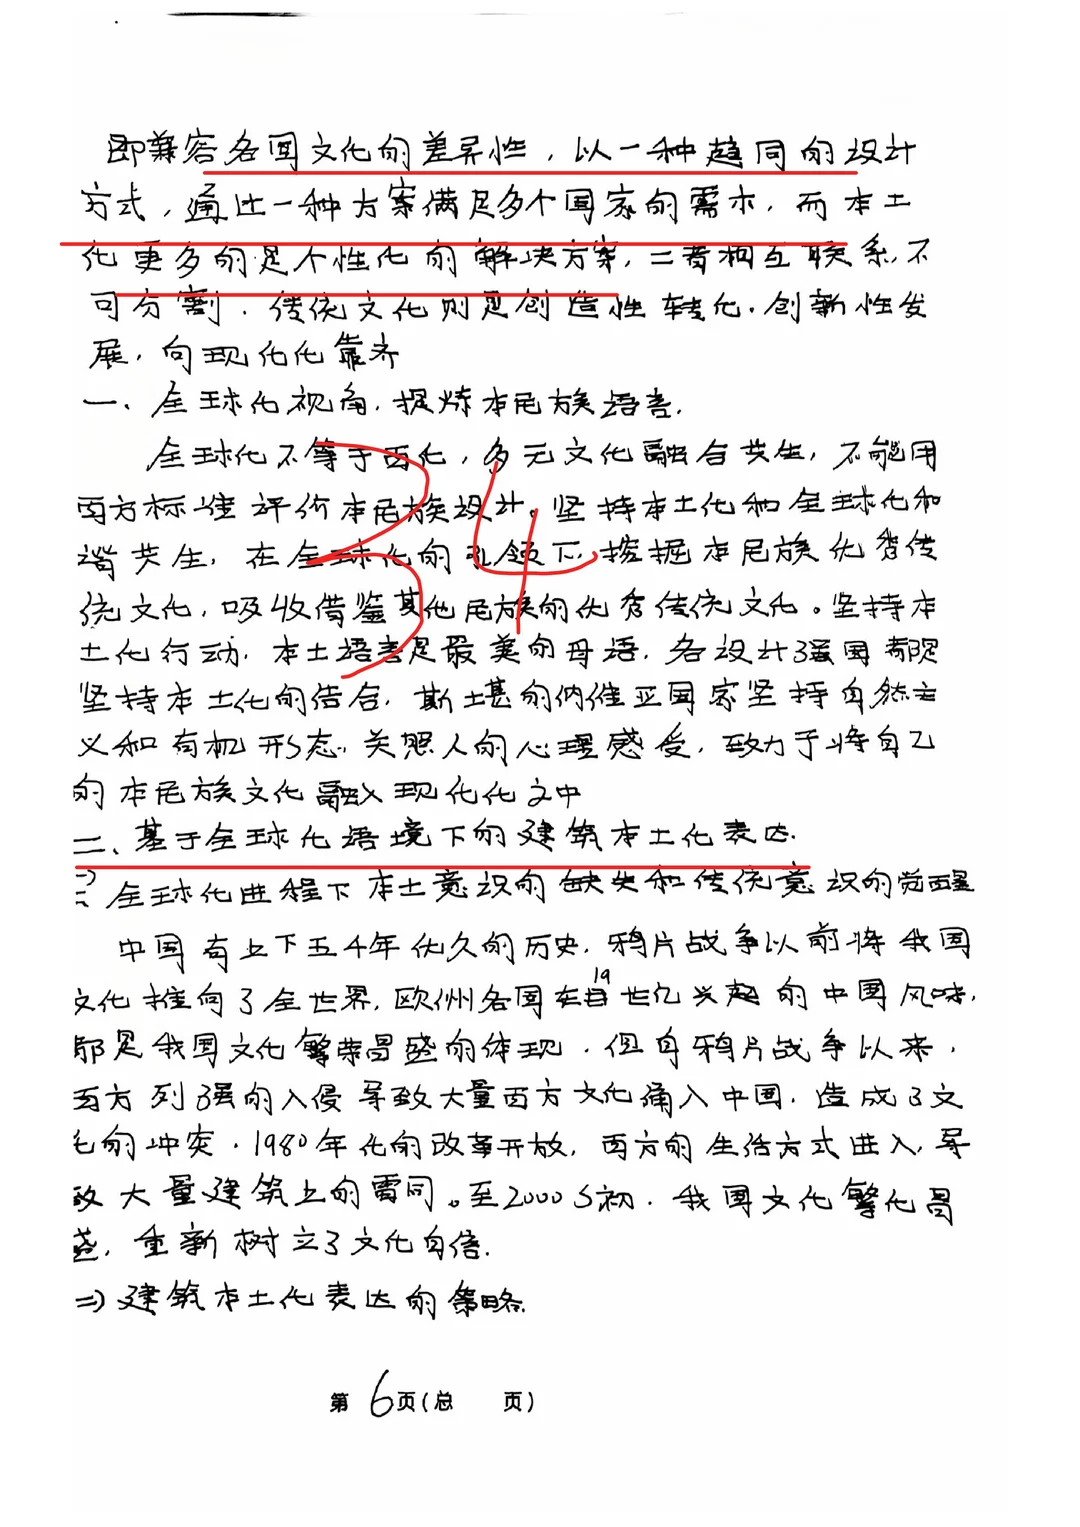 即兼容各国文化的差异性，以一种趋同的设计
方式，通过一种方案满足多个国家的需求，而本土
化更多的是个性化的解决方案，二者相互联系，不
可分割．传统文化则是创造性转化．创新性发
展，向现代化靠齐
一、全球化视角，提炼本民族语言．
全球化不等于西化，多元文化融合共生，不能用
西方标准评价本民族设计。坚持本土化和全球化和
谐共生，在全球化的引领下，挖掘本民族优秀传
统文化，吸收借鉴其他民族的优秀传统文化。坚持本
土化行动，本土语言是最美的母语，各设计强国都
坚持本土化的结合，斯堪的纳维亚国家坚持自然主
义和有机形态，关照人的心理感受，致力于将自己
的本民族文化融入现代化之中
二、基于全球化语境下的建筑本土化表达．
全球化进程下本土意识的缺失和传统意识的觉醒
中国有上下五千年优久的历史，鸦片战争以前将我国
文化推向了全世界，欧州各国在19世纪兴起的中国风味，
都是我国文化繁荣昌盛的体现．但自鸦片战争以来，
西方列强的入侵导致大量西方文化涌入中国，造成了文
化的冲突．1980年代的改革开放，西方的生活方式进入，导
致大量建筑上的雷同。至2000s初．我国文化繁化昌
盛，重新树立了文化自信．
二)建筑本土化表达的策略．
34
第6页(总 页)